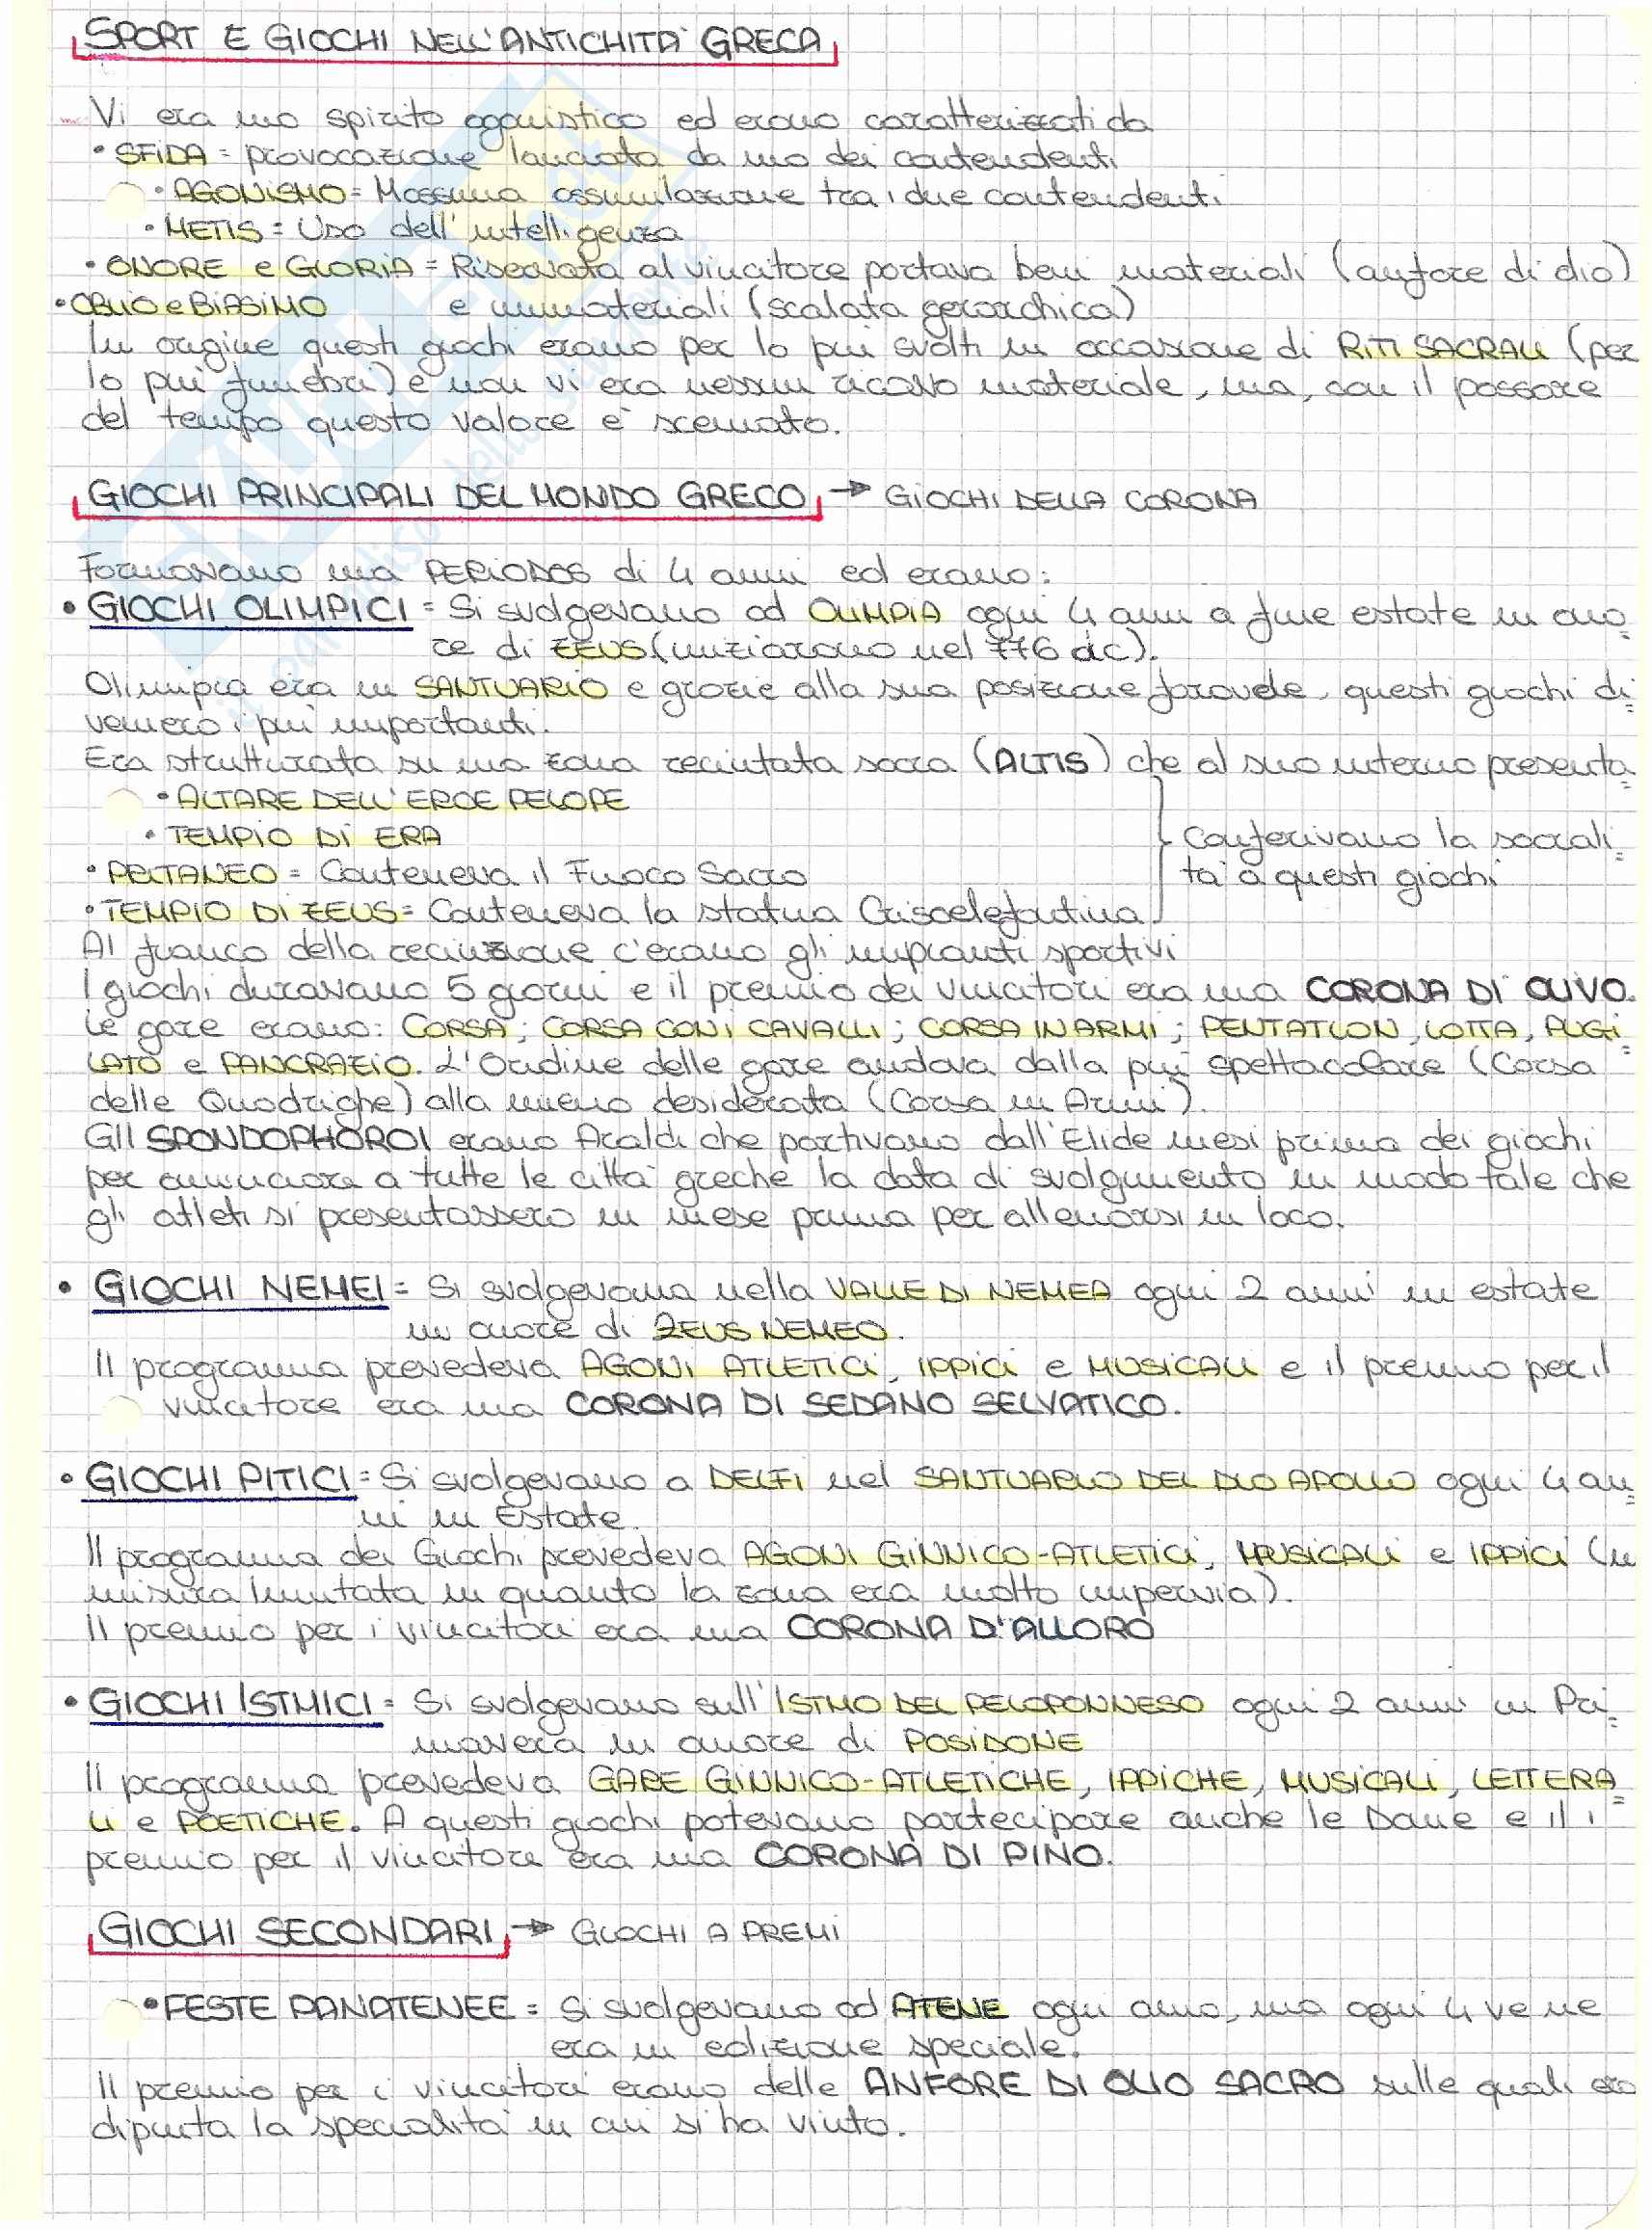 SPORT E GIOCHI NELL'ANTICHITA' GRECA
Vi era uno spirito agonistico ed erano caratterizzati da
• SFIDA = provocazione lanciata da uno dei contendenti
• AGONISMO = Massima assimilazione tra i due contendenti
• METIS = Uso dell'intelligenza
• ONORE e GLORIA = Riservata al vincitore portava beni materiali (anfore di olio)
• OBLIO e BIASIMO e immateriali (scalata gerarchica)
In origine questi giochi erano per lo più svolti in occasione di RITI SACRALI (per
lo più funebri) e non vi era nessun ricavo materiale, ma, con il passare
del tempo questo valore è scemato.
GIOCHI PRINCIPALI DEL MONDO GRECO → GIOCHI DELLA CORONA
Formavano una PERIODOS di 4 anni ed erano:
• GIOCHI OLIMPICI = Si svolgevano ad OLIMPIA ogni 4 anni a fine estate in ono=
re di ZEUS (iniziarono nel 776 a.c).
Olimpia era un SANTUARIO e grazie alla sua posizione favorevole, questi giochi di=
vennero i più importanti.
Era strutturata su una zona recintata sacra (ALTIS) che al suo interno presenta=
• ALTARE DELL'EROE PELOPE
• TEMPIO DI ERA
Conferivano la sacrali=
• PRITANEO = Conteneva il Fuoco Sacro
tà a questi giochi
• TEMPIO DI ZEUS = Conteneva la statua Crisoelefantina
Al fianco della recinzione c'erano gli impianti sportivi
I giochi duravano 5 giorni e il premio dei vincitori era una CORONA DI OLIVO.
Le gare erano: CORSA; CORSA CON I CAVALLI; CORSA IN ARMI; PENTATLON, LOTTA, PUGI=
LATO e PANCRAZIO. L'Ordine delle gare andava dalla più spettacolare (Corsa
delle Quadrighe) alla meno desiderata (Corsa in Armi).
Gli SPONDOPHOROI erano Araldi che partivano dall'Elide mesi prima dei giochi
per annunciare a tutte le città greche la data di svolgimento in modo tale che
gli atleti si presentassero un mese prima per allenarsi in loco.
• GIOCHI NEMEI = Si svolgevana nella VALLE DI NEMEA ogni 2 anni in estate
in onore di ZEUS NEMEO.
Il programma prevedeva AGONI ATLETICI, IPPICI e MUSICALI e il premio per il
vincitore era una CORONA DI SEDANO SELVATICO.
• GIOCHI PITICI = Si svolgevano a DELFI nel SANTUARIO DEL DIO APOLLO ogni 4 an=
ni in Estate.
Il programma dei Giochi prevedeva AGONI GINNICO-ATLETICI, MUSICALI e IPPICI (in
misura limitata in quanto la zona era molto impervia).
Il premio per i vincitori era una CORONA D'ALLORO
• GIOCHI ISTMICI = Si svolgevano sull'ISTMO DEL PELOPONNESO ogni 2 anni in Pri=
mavera in onore di POSIDONE
Il programma prevedeva GARE GINNICO-ATLETICHE, IPPICHE, MUSICALI, LETTERA=
LI e POETICHE. A questi giochi potevano partecipare anche le Donne e il
premio per il vincitore era una CORONA DI PINO.
GIOCHI SECONDARI → GIOCHI A PREMI
• FESTE PANATENEE = Si svolgevano ad ATENE ogni anno, ma ogni 4 ve ne
era un edizione speciale.
Il premio per i vincitori erano delle ANFORE DI OLIO SACRO sulle quali era
dipinta la specialità in cui si ha vinto.